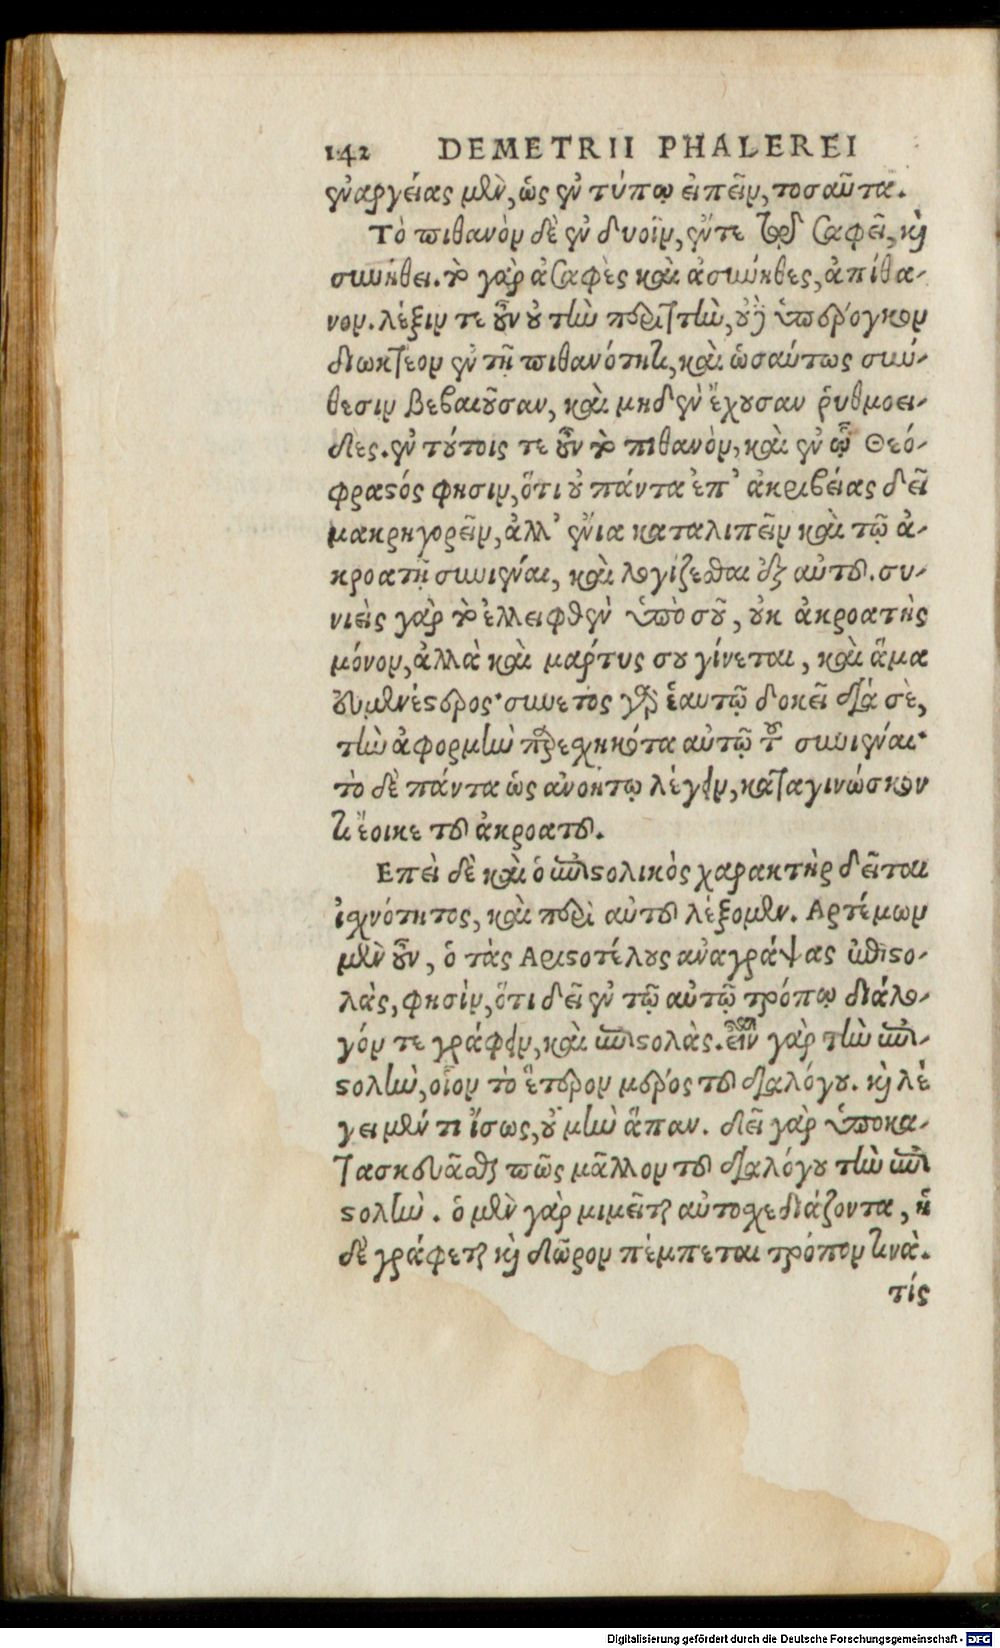 142 DEMETRII PHALEREI
ἐναργείας μὲν, ὡς ἐν τύπῳ εἰπεῖν, τοσαῦτα.
Τὸ πιθανὸν δὲ ἐν δυοῖν, ἔν τε τῷ σαφεῖ, καὶ
συνήθει. τὸ γὰρ ἀσαφὲς καὶ ἀσυνήθες, ἀπίθα-
νον. λέξιν τε οὖν οὐ τὴν περιττὴν, οὐδὲ ὑπέρογκον
διωκτέον ἐν τῇ πιθανότητι, καὶ ὡσαύτως σύν-
θεσιν βεβαιοῦσαν, καὶ μηδὲν ἔχουσαν ῥυθμοει-
δές. ἐν τούτοις τε οὖν τὸ πιθανὸν, καὶ ἐν ᾧ Θεό-
φραστός φησιν, ὅτι οὐ πάντα ἐπ’ ἀκριβείας δεῖ
μακρηγορεῖν, ἀλλ’ ἔνια καταλιπεῖν καὶ τῷ ἀ-
κροατῇ συνιέναι, καὶ λογίζεσθαι ἐξ αὑτοῦ. συ-
νιεὶς γὰρ τὸ ἐλλειφθὲν ὑπὸ σοῦ, οὐκ ἀκροατὴς
μόνον, ἀλλὰ καὶ μάρτυς σου γίνεται, καὶ ἅμα
εὐμενέστερος· συνετὸς γὰρ ἑαυτῷ δοκεῖ διὰ σὲ,
τὴν ἀφορμὴν παρεσχηκότα αὐτῷ τοῦ συνιέναι·
τὸ δὲ πάντα ὡς ἀνοήτῳ λέγειν, καταγινώσκον
τι ἔοικε τοῦ ἀκροατοῦ.
Επεὶ δὲ καὶ ὁ ἐπιστολικὸς χαρακτὴρ δεῖται
ἰσχνότητος, καὶ περὶ αὐτοῦ λέξομεν. Αρτέμων
μὲν οὖν, ὁ τὰς Αριστοτέλους ἀναγράψας ἐπιστο-
λὰς, φησὶν, ὅτι δεῖ ἐν τῷ αὐτῷ τρόπῳ διάλο-
γόν τε γράφειν, καὶ ἐπιστολὰς. εἶναι γὰρ τὴν ἐπι-
στολὴν, οἷον τὸ ἕτερον μέρος τοῦ διαλόγου. καὶ λέ
γει μέν τι ἴσως, οὐ μὴν ἅπαν. δεῖ γὰρ ὑποκα-
τασκευᾶσθαι πῶς μᾶλλον τοῦ διαλόγου τὴν ἐπι
στολὴν. ὁ μὲν γὰρ μιμεῖται αὐτοσχεδιάζοντα, ἡ
δὲ γράφεται καὶ δῶρον πέμπεται τρόπον τινὰ.
τίς
Digitalisierung gefördert durch die Deutsche Forschungsgemeinschaft - DFG